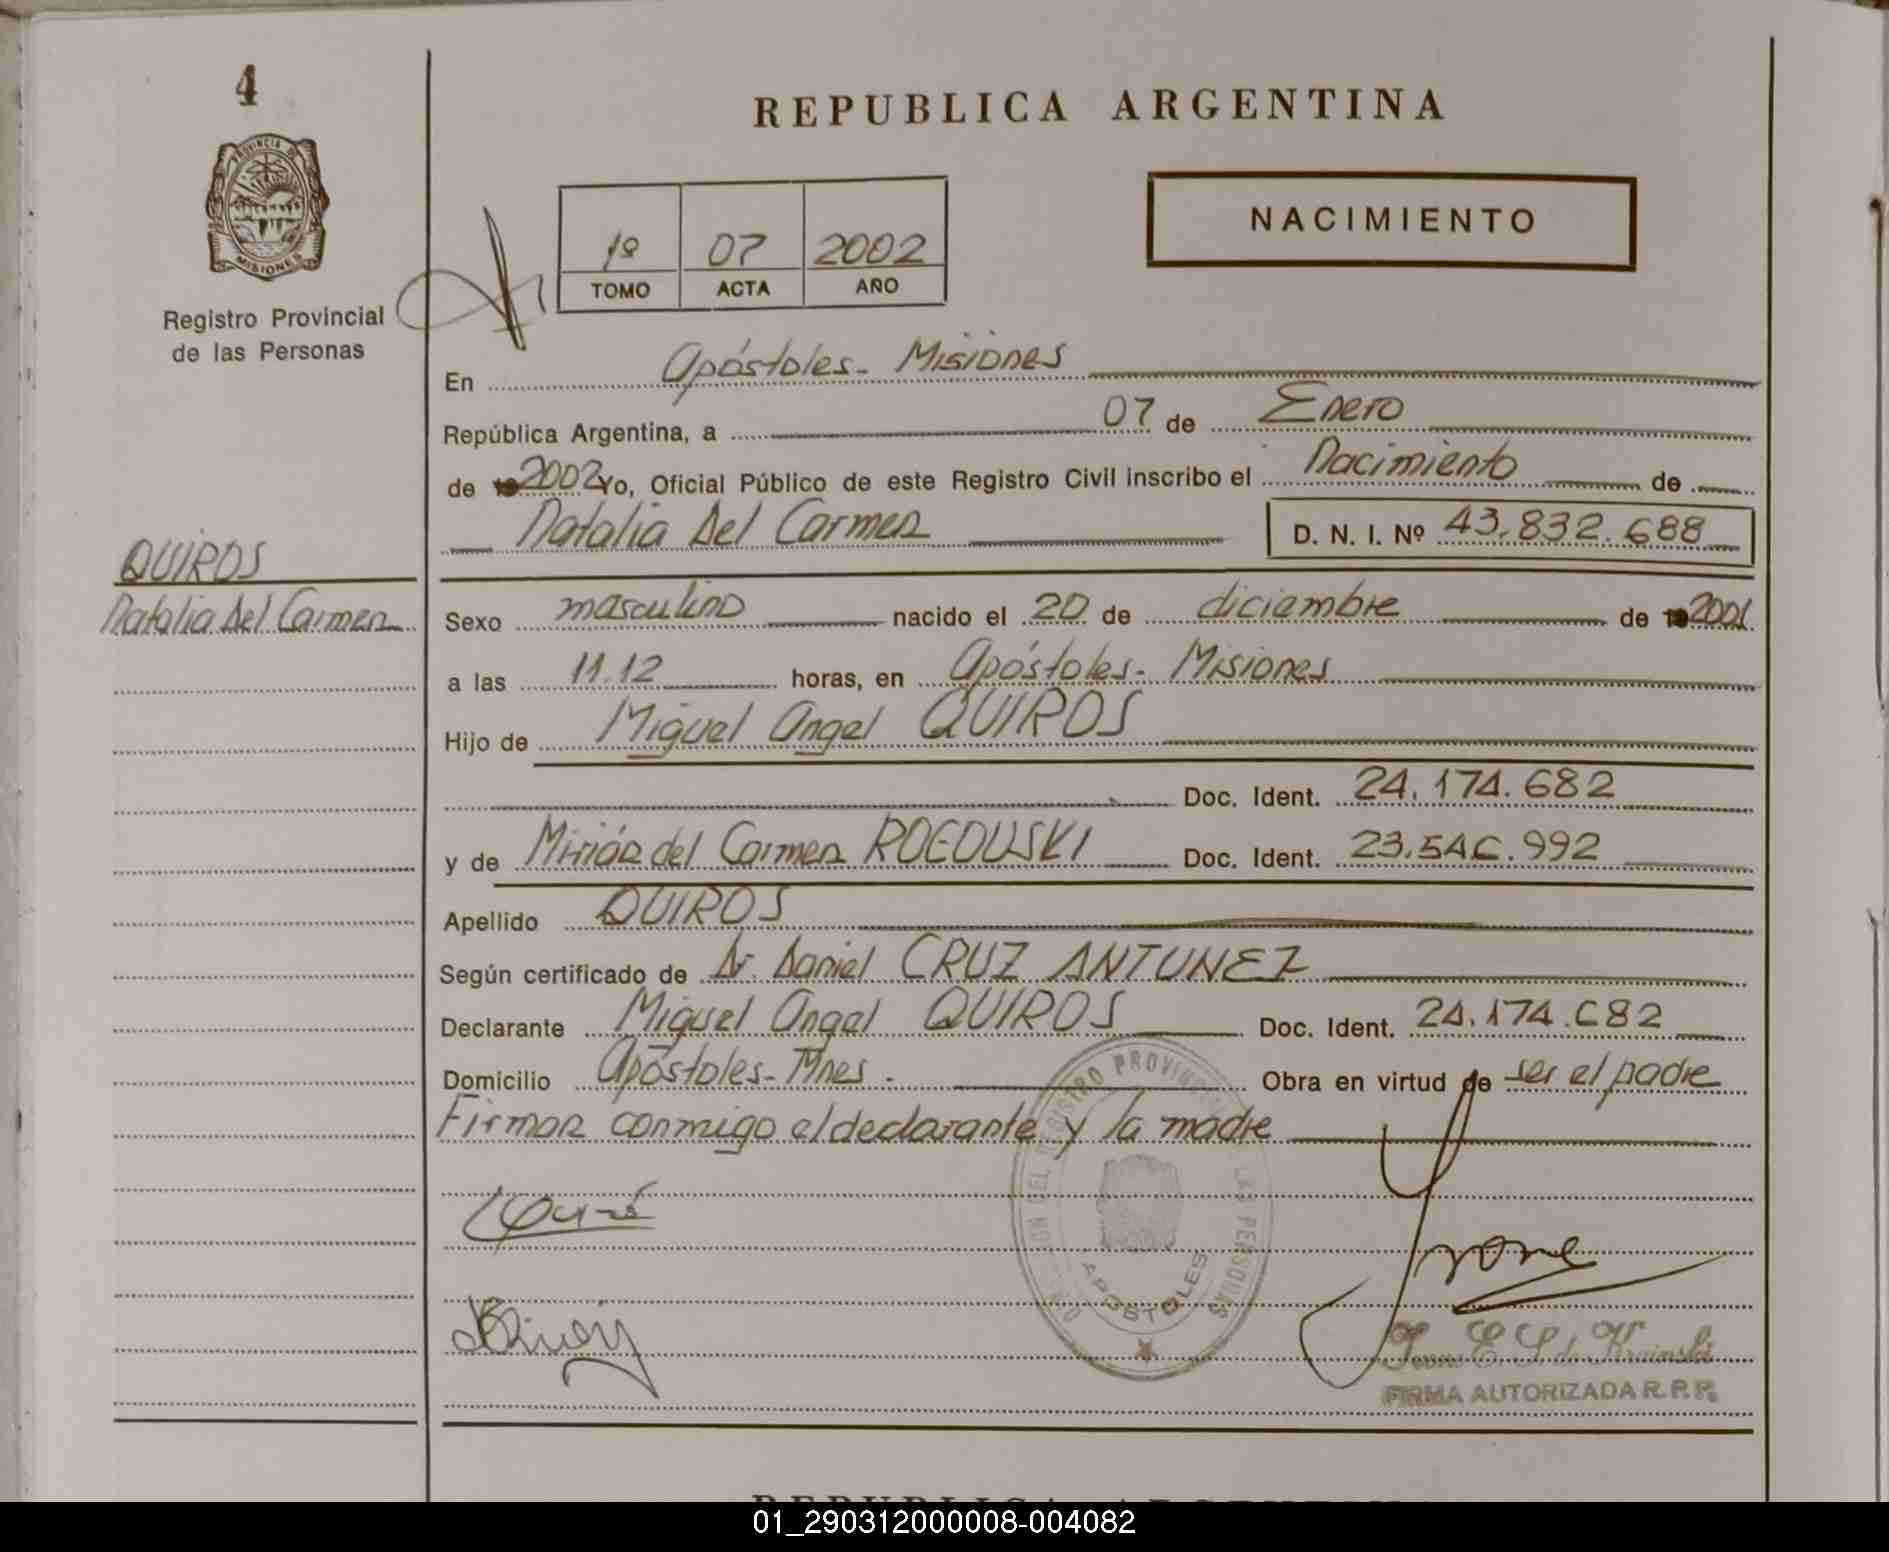 4
REPUBLICA ARGENTINA
PROVINCIA DE
MISIONES
Registro Provincial
de las Personas
1º 07 2002
TOMO ACTA AÑO
NACIMIENTO
En Apóstoles - Misiones
República Argentina, a 07 de Enero
de 19 2002 Yo, Oficial Público de este Registro Civil inscribo el Nacimiento de
Natalia Del Carmen D. N. I. Nº 43.832.688
QUIROS
Natalia Del Carmen
Sexo masculino nacido el 20 de diciembre de 19 2001
a las 11.12 horas, en Apóstoles - Misiones
Hijo de Miguel Angel QUIROS
Doc. Ident. 24.174.682
y de Mirián del Carmen ROGOUSKI Doc. Ident. 23.546.992
Apellido QUIROS
Según certificado de Dr. Daniel CRUZ ANTUNEZ
Declarante Miguel Angel QUIROS Doc. Ident. 24.174.682
Domicilio Apóstoles - Mnes. Obra en virtud de ser el padre
Firman conmigo el declarante y la madre
REGISTRO PROVINCIAL LAS PERSONAS
APOSTOLES
Ivone E. S. de Krainski
FIRMA AUTORIZADA R.P.P.
REPUBLICA ARGENTINA
01_290312000008-004082